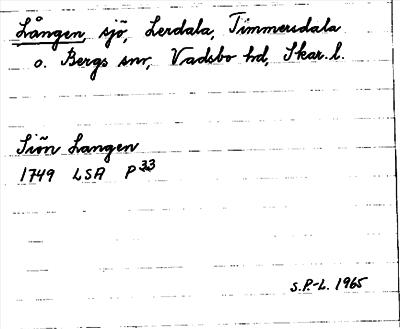 Lången, sjö, Lerdala, Timmersdala
o. Bergs snr, Vadsbo hd, Skar. l.
Siön Langen
1749 LSA P 33
S.P.-L. 1965